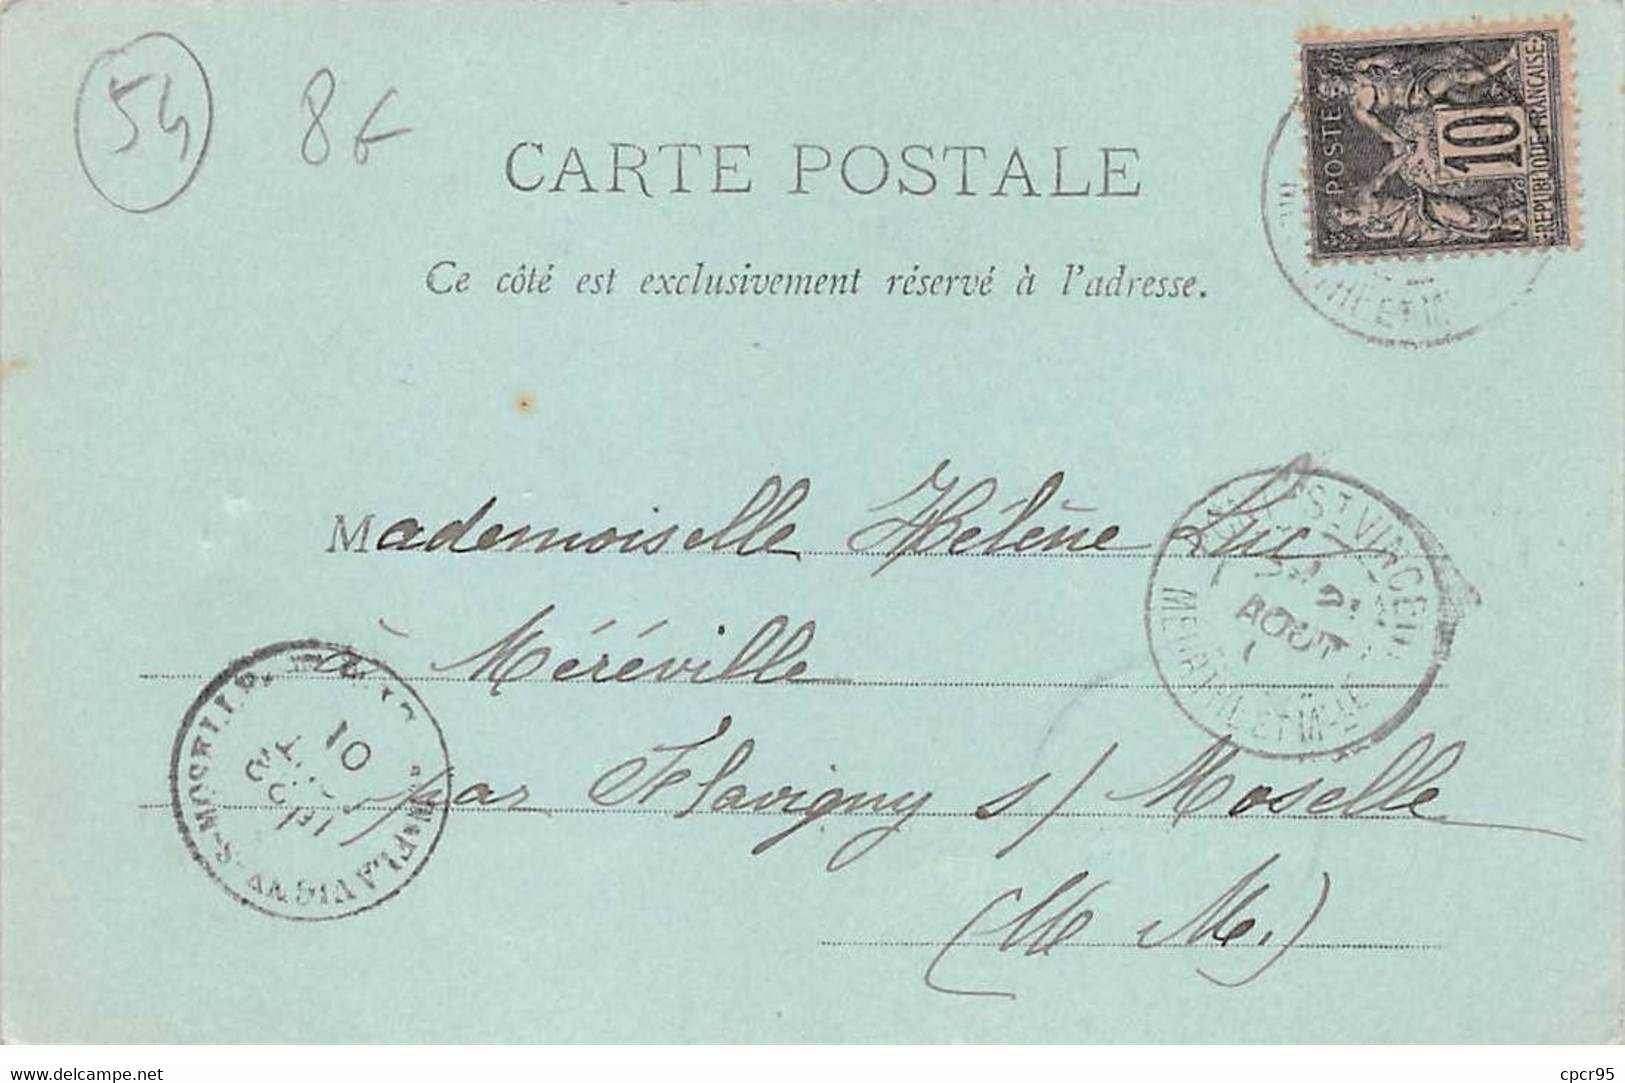 54
8€
CARTE POSTALE
Ce côté est exclusivement réservé à l'adresse.
POSTES
10
REPUBLIQUE FRANÇAISE
Mademoiselle Hélène Luc
à Méréville
par Flavigny s/ Moselle
(M M.)
ST VINCENT
AOUT
MEURTHE ET M
FLAVIGNY-S-MOSELLE
AOUT
01
www.delcampe.net
cpcr95